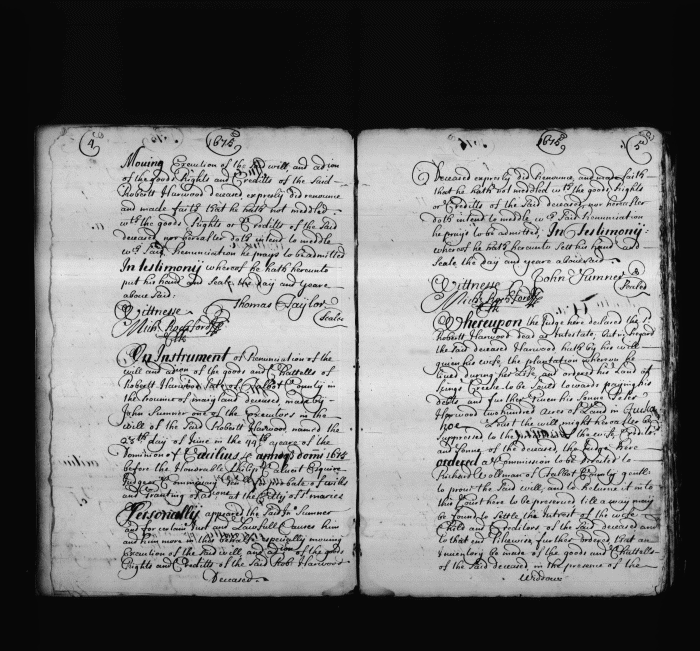 4
1675
Moving Execution of the Said will, and adcon
of the good Rights and Creditts of the Said
Robertt Harwood deceased expresly did renounce
and made faith that he hath not meddled
wth the goods Rights or Creditts of the Said
deceased nor hereafter doth intend to meddle
wch Said Renunciation he prays to be admitted
In Testimonij whereof he hath hereunto
put his hand and Seale the day and yeare
above said.
Wittnesse Thomas Taylor
Mich: Rochford Sealed
Clk
An Instrument of Renunciation of the
will and adcon of the goods and Chattells of
Robertt Harwood late of Talbot County in
the province of maryland deceased made by
John Sumner one of the Executors in the
will of the Said Robertt Harwood named the
28th day of June in the 44th yeare of the
Dominion of Cecilius &c annoq domi 1675
before the Honorable Philip Calvert Esquire
Judge or Commissary for probate of wills
and Granting of adcons at the Citty of St maries
Personally appeared the Said Jn Sumner
and for certain Just and Lawfull Causes him
and him more in this behalfe especially moving
Execution of the Said will and adcon of the goods
Rights and Creditts of the Said Robt Harwood
Deceased
1675
5
Deceased expresly did Renounce and made faith
that he hath not meddled wth the goods Rights
or Creditts of the Said deceased, nor hereafter
doth intend to meddle wch Said Renunciation
he prays to be admitted, In Testimonij
whereof he hath hereunto Sett his hand and
Seale the day and yeare abovesaid
Wittnesse John Sumner
Mich: Rochford Sealed
Clk
Whereupon the Judge here declared the
Robertt Harwood dead as Intestate, but in regard
the Said deceased Harwood hath by his will
given his wife, the plantation whereon he
lived during her Life, and ordered his Land at
Kings Creeke to be Sould towards paying his
debts and further given his Sonne Peter
Harwood two hundred Acres of Land in
hoe Least the will might hereafter be
Suppressed to the of the wife, Creditors
and Sonne of the deceased, the Judge here
ordered a Commission to be directed to
Richard Woollman of Talbott County gentl:
to prove the Said will, and to Returne it into
this Court here to be preserved till a way may
be found to Settle the Interest of the wife
Child and Creditors of the Said deceased and
to that end Likewise further ordered that an
Inventory be made of the goods and Chattells
of the Said deceased, in the presence of the
Widdow